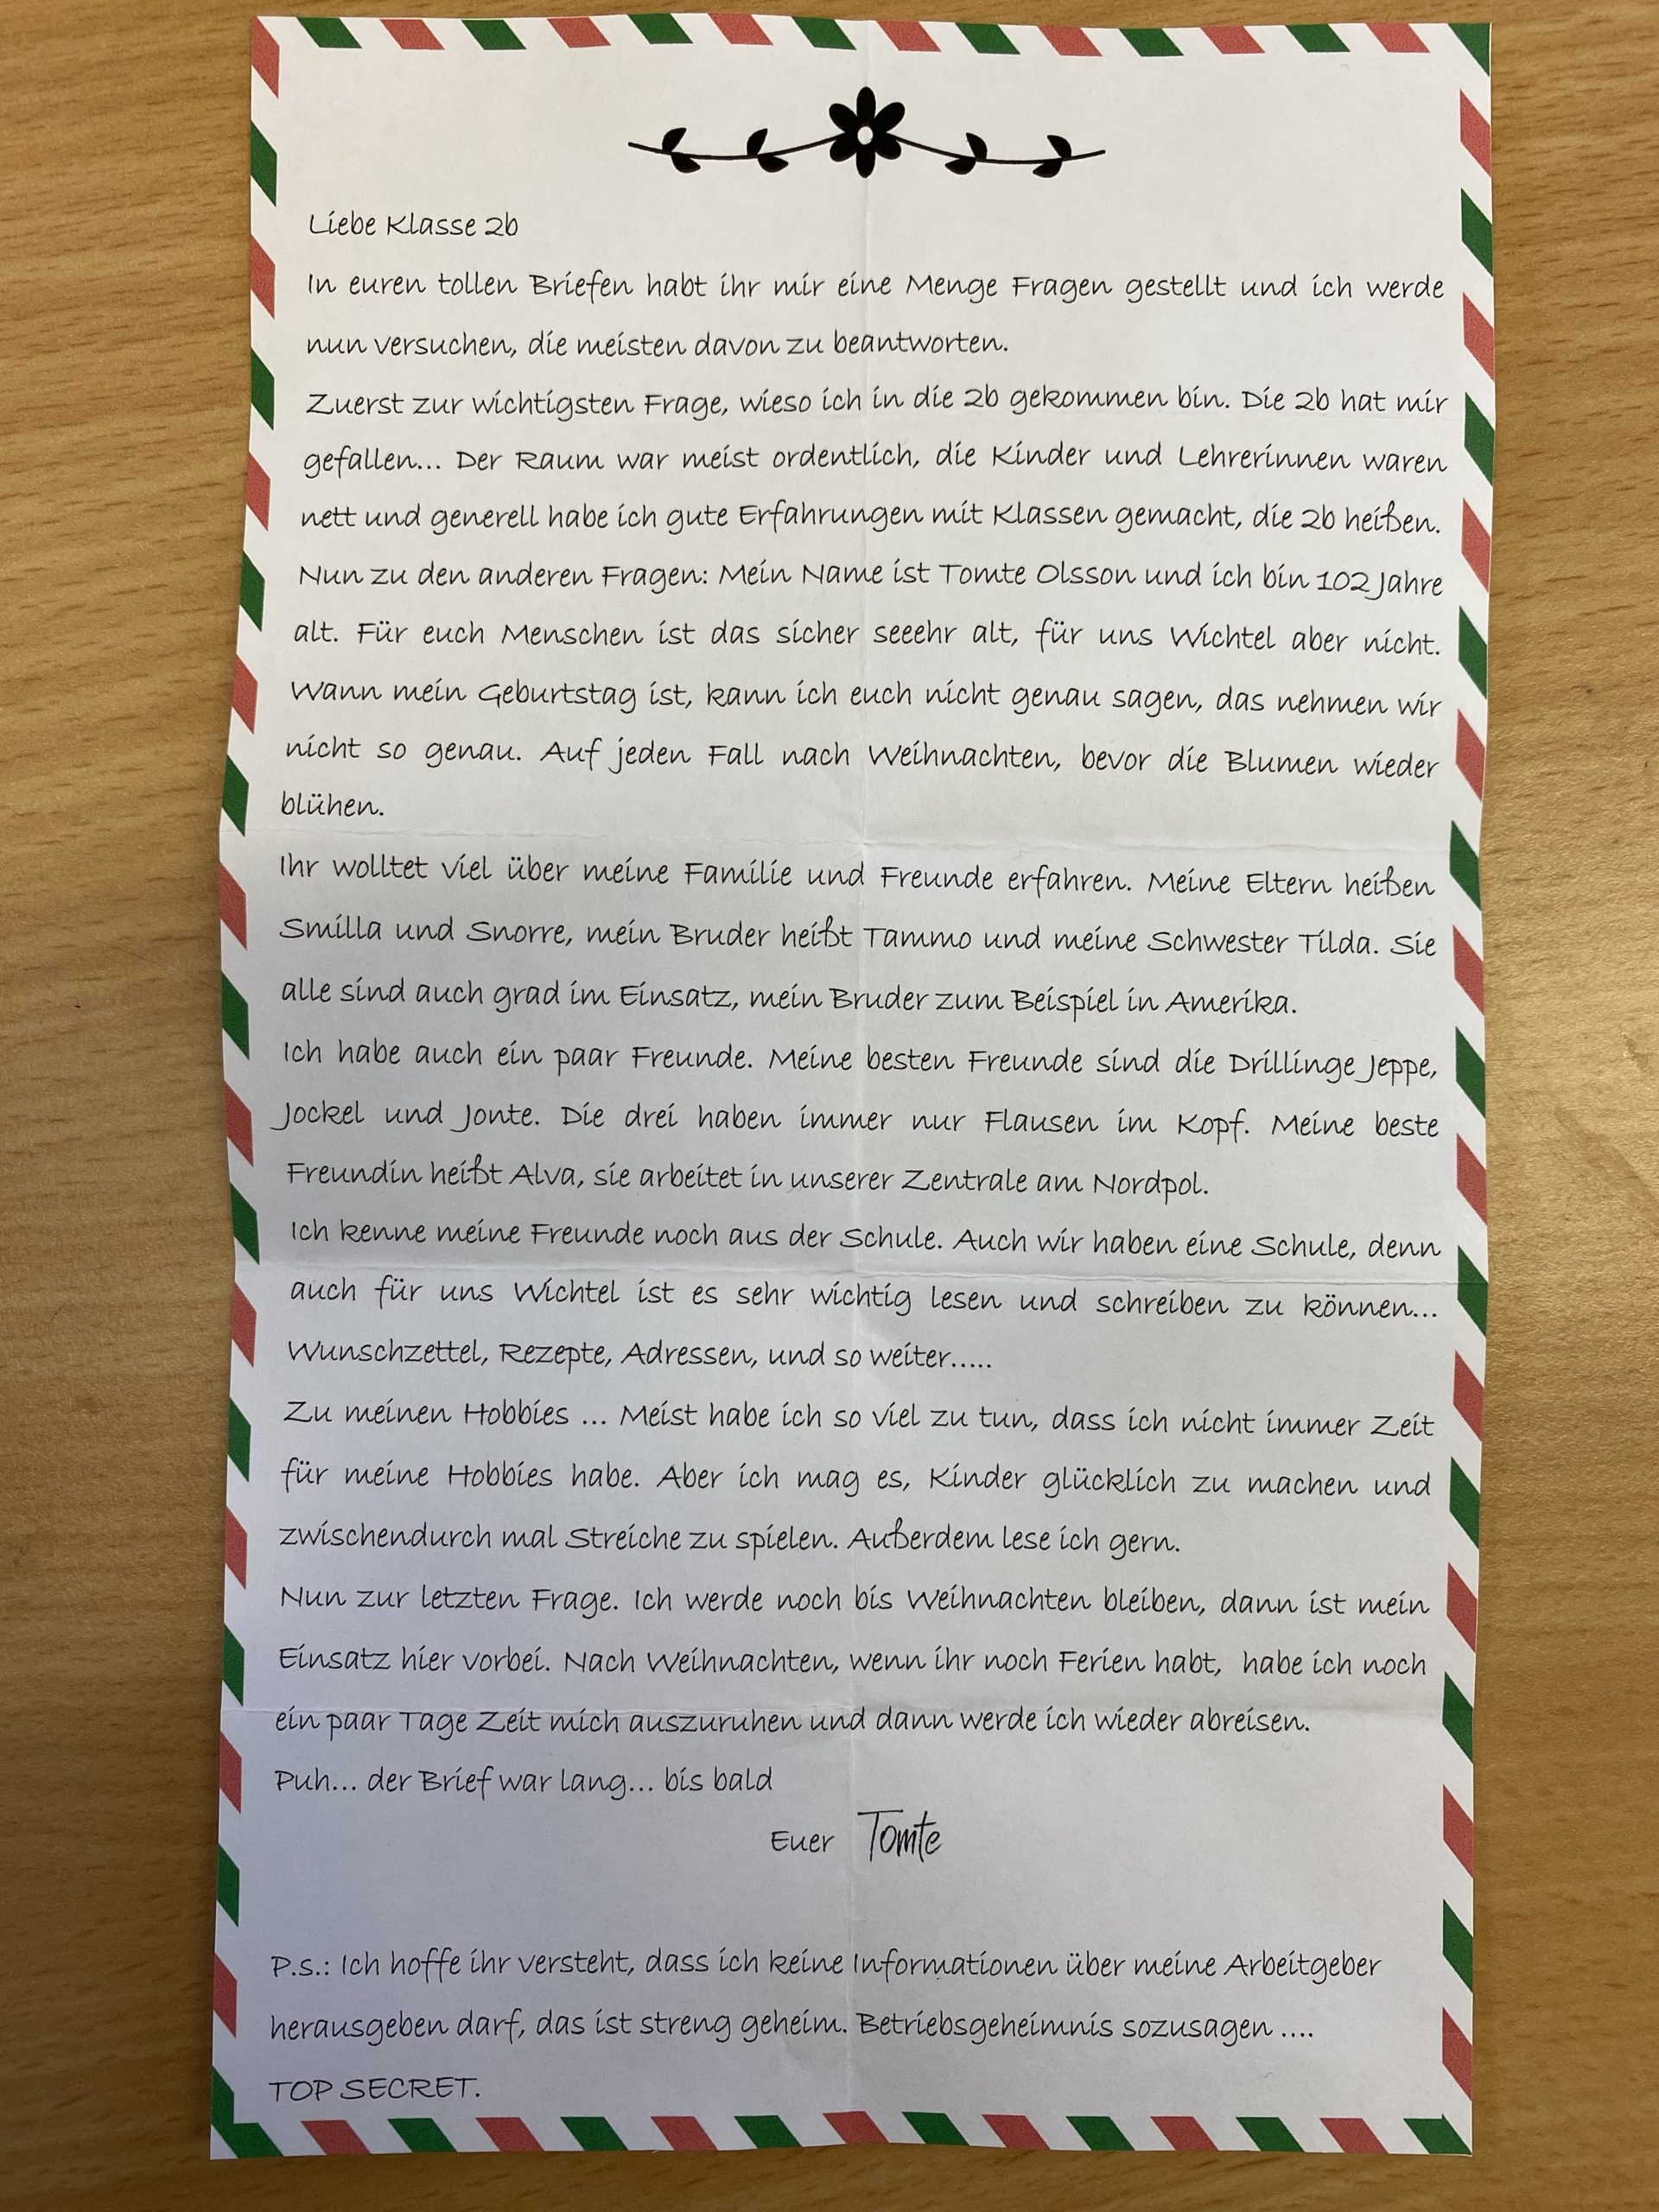 Liebe Klasse 2b
In euren tollen Briefen habt ihr mir eine Menge Fragen gestellt und ich werde
nun versuchen, die meisten davon zu beantworten.
Zuerst zur wichtigsten Frage, wieso ich in die 2b gekommen bin. Die 2b hat mir
gefallen... Der Raum war meist ordentlich, die Kinder und Lehrerinnen waren
nett und generell habe ich gute Erfahrungen mit Klassen gemacht, die 2b heißen.
Nun zu den anderen Fragen: Mein Name ist Tomte Olsson und ich bin 102 Jahre
alt. Für euch Menschen ist das sicher seeehr alt, für uns Wichtel aber nicht.
Wann mein Geburtstag ist, kann ich euch nicht genau sagen, das nehmen wir
nicht so genau. Auf jeden Fall nach Weihnachten, bevor die Blumen wieder
blühen.
Ihr wolltet viel über meine Familie und Freunde erfahren. Meine Eltern heißen
Smilla und Snorre, mein Bruder heißt Tammo und meine Schwester Tilda. Sie
alle sind auch grad im Einsatz, mein Bruder zum Beispiel in Amerika.
Ich habe auch ein paar Freunde. Meine besten Freunde sind die Drillinge Jeppe,
Jockel und Jonte. Die drei haben immer nur Flausen im Kopf. Meine beste
Freundin heißt Alva, sie arbeitet in unserer Zentrale am Nordpol.
Ich kenne meine Freunde noch aus der Schule. Auch wir haben eine Schule, denn
auch für uns Wichtel ist es sehr wichtig lesen und schreiben zu können...
Wunschzettel, Rezepte, Adressen, und so weiter.....
Zu meinen Hobbies ... Meist habe ich so viel zu tun, dass ich nicht immer Zeit
für meine Hobbies habe. Aber ich mag es, Kinder glücklich zu machen und
zwischendurch mal Streiche zu spielen. Außerdem lese ich gern.
Nun zur letzten Frage. Ich werde noch bis Weihnachten bleiben, dann ist mein
Einsatz hier vorbei. Nach Weihnachten, wenn ihr noch Ferien habt, habe ich noch
ein paar Tage Zeit mich auszuruhen und dann werde ich wieder abreisen.
Puh... der Brief war lang... bis bald
Euer Tomte
P.s.: Ich hoffe ihr versteht, dass ich keine Informationen über meine Arbeitgeber
herausgeben darf, das ist streng geheim. Betriebsgeheimnis sozusagen ....
TOP SECRET.